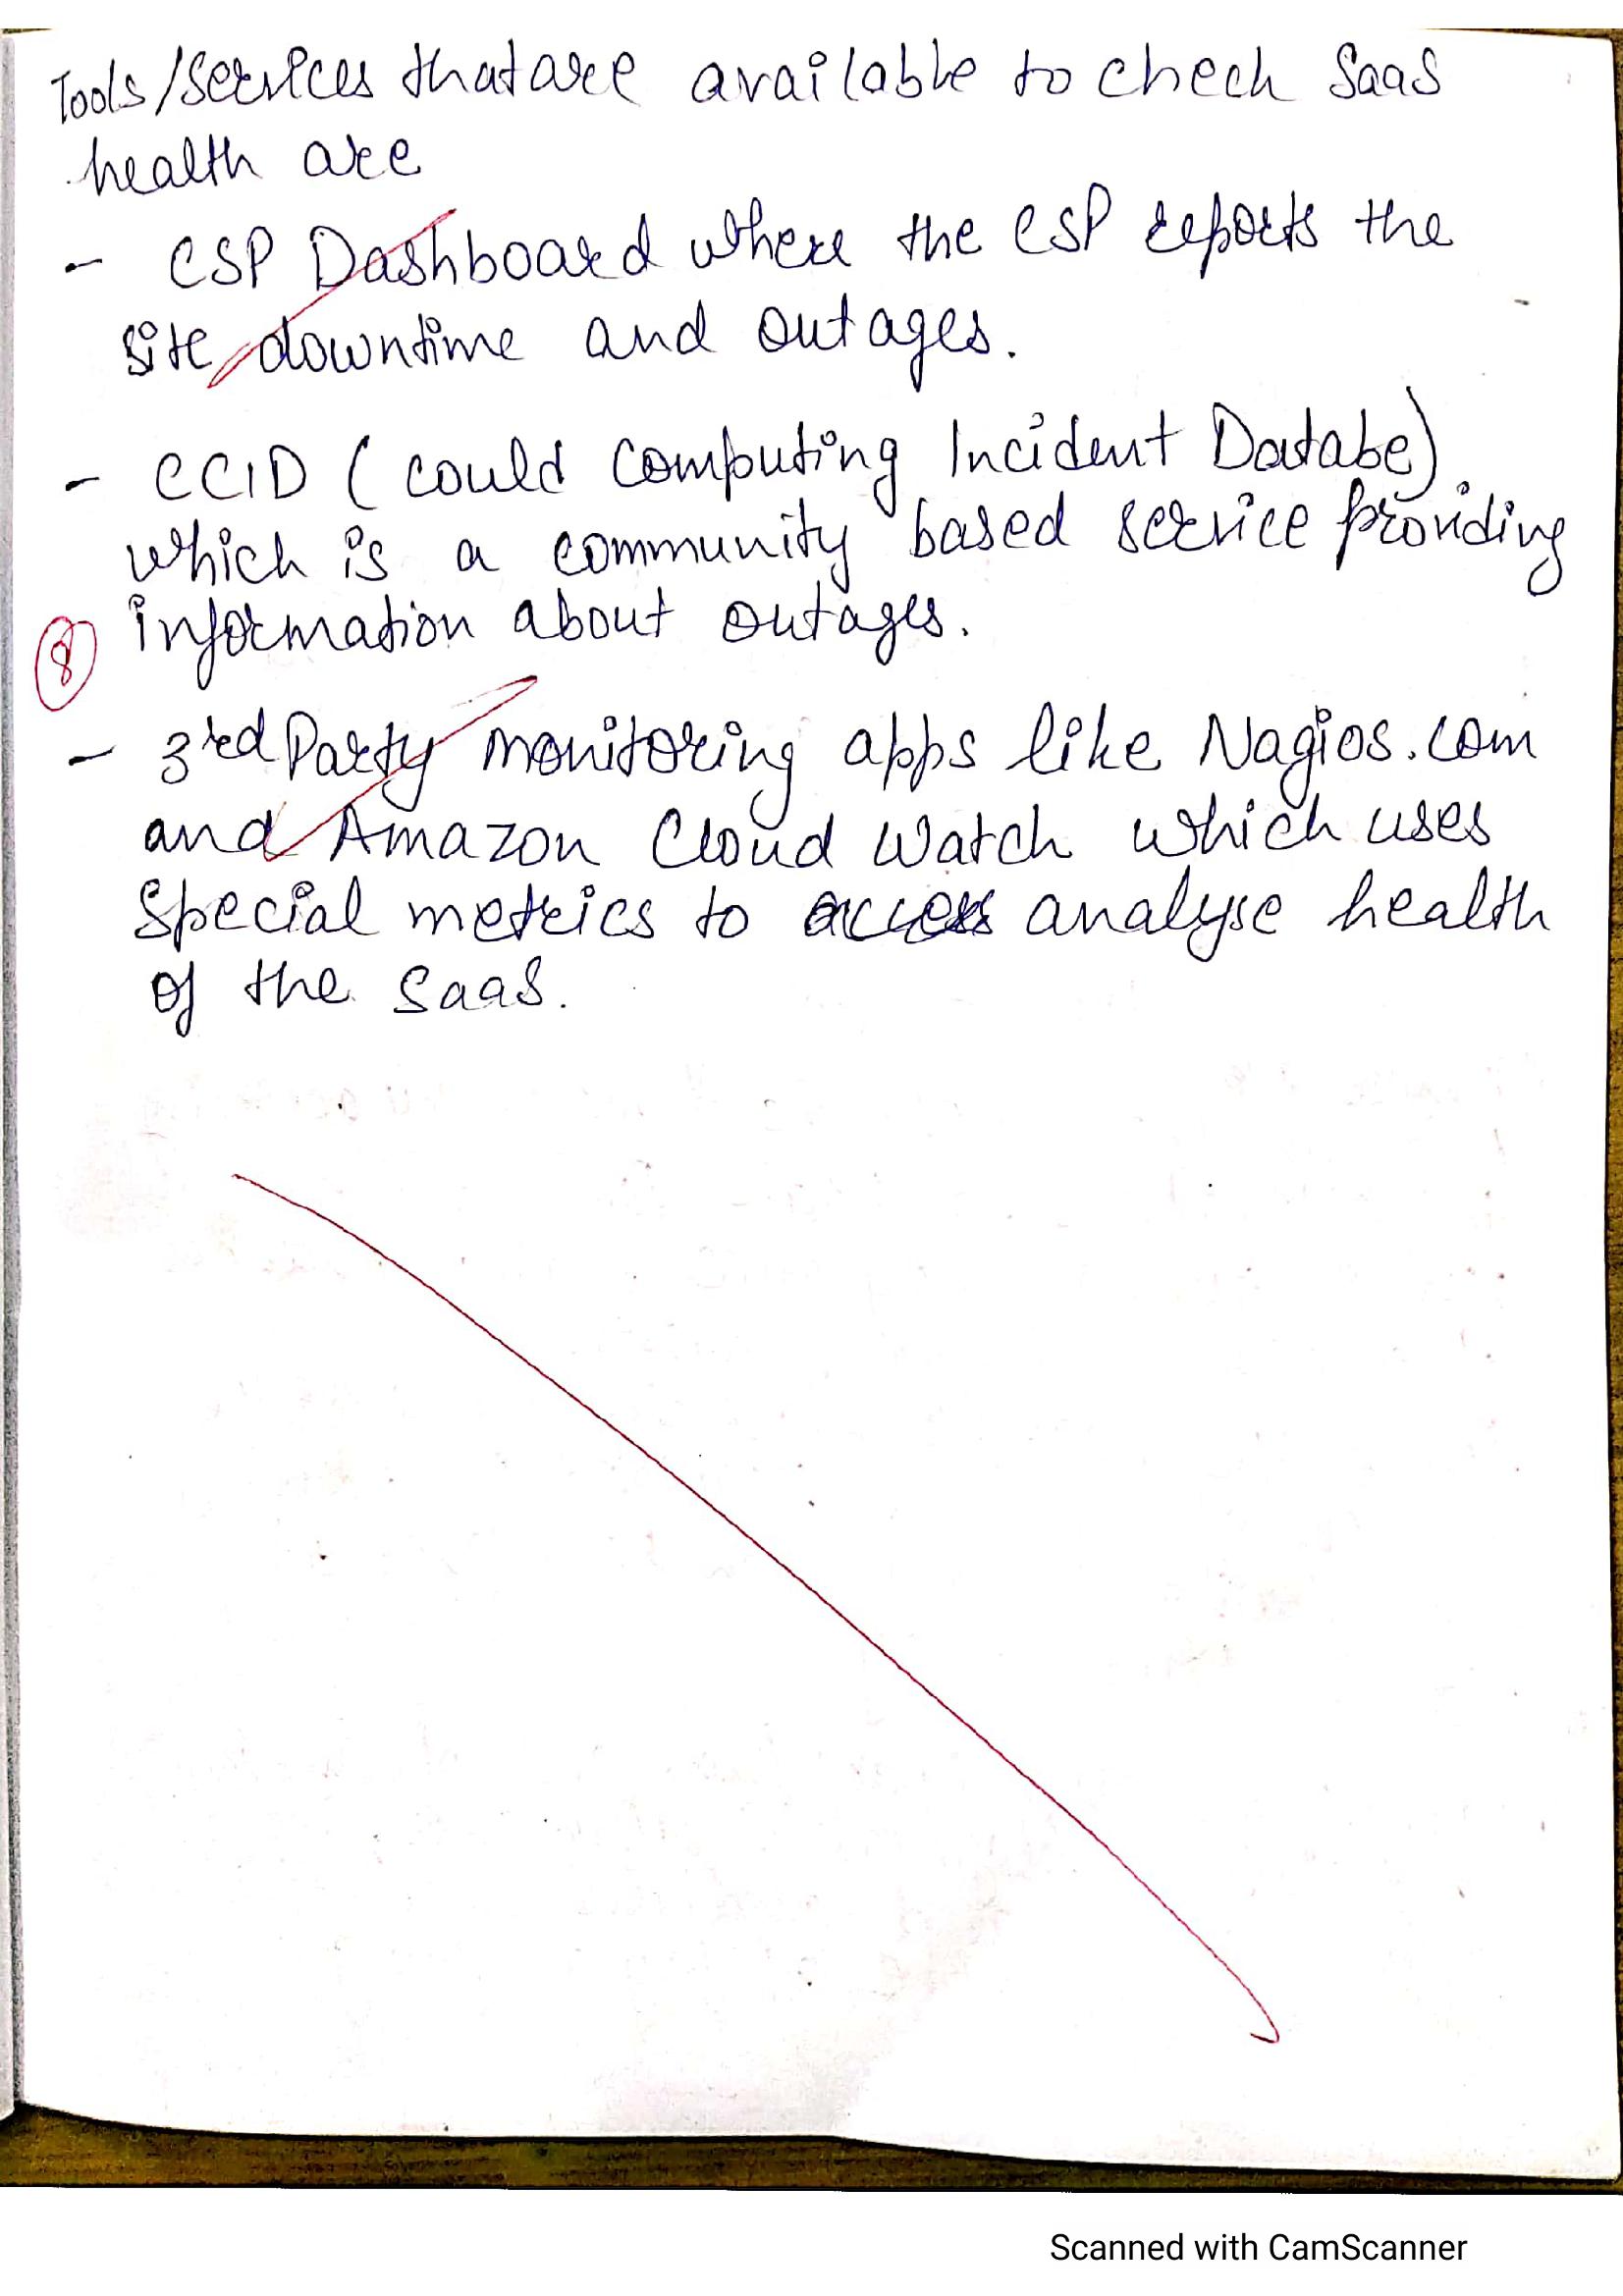 Tools/Services that are available to check SaaS
health are
- CSP Dashboard where the CSP reports the
site downtime and outages.
- CCID (could computing Incident Databe)
which is a community based service providing
8 information about outages.
- 3rd Party monitoring apps like Nagios.com
and Amazon Cloud Watch which uses
special metrics to access analyse health
of the SaaS.
Scanned with CamScanner